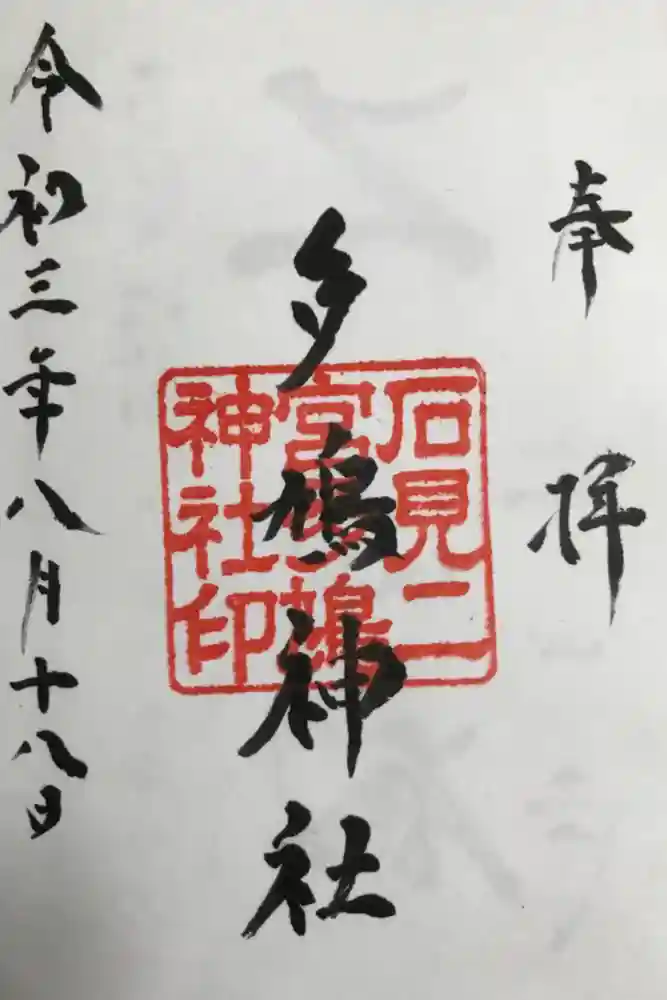 奉拝
石見二
宮多鳩
神社印
多鳩神社
令和三年八月十八日